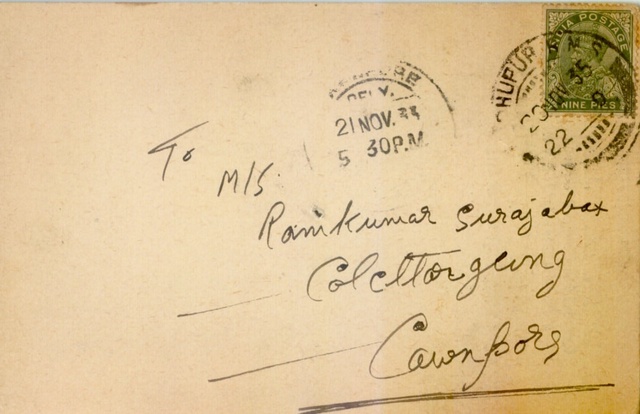 INDIA POSTAGE
NINE PIES
20 NOV 35
22
DELY.
21 NOV. 35
5 30 P.M.
To
M/S.
Ramkumar Surajabax
Colcttorgung
Cawnpore